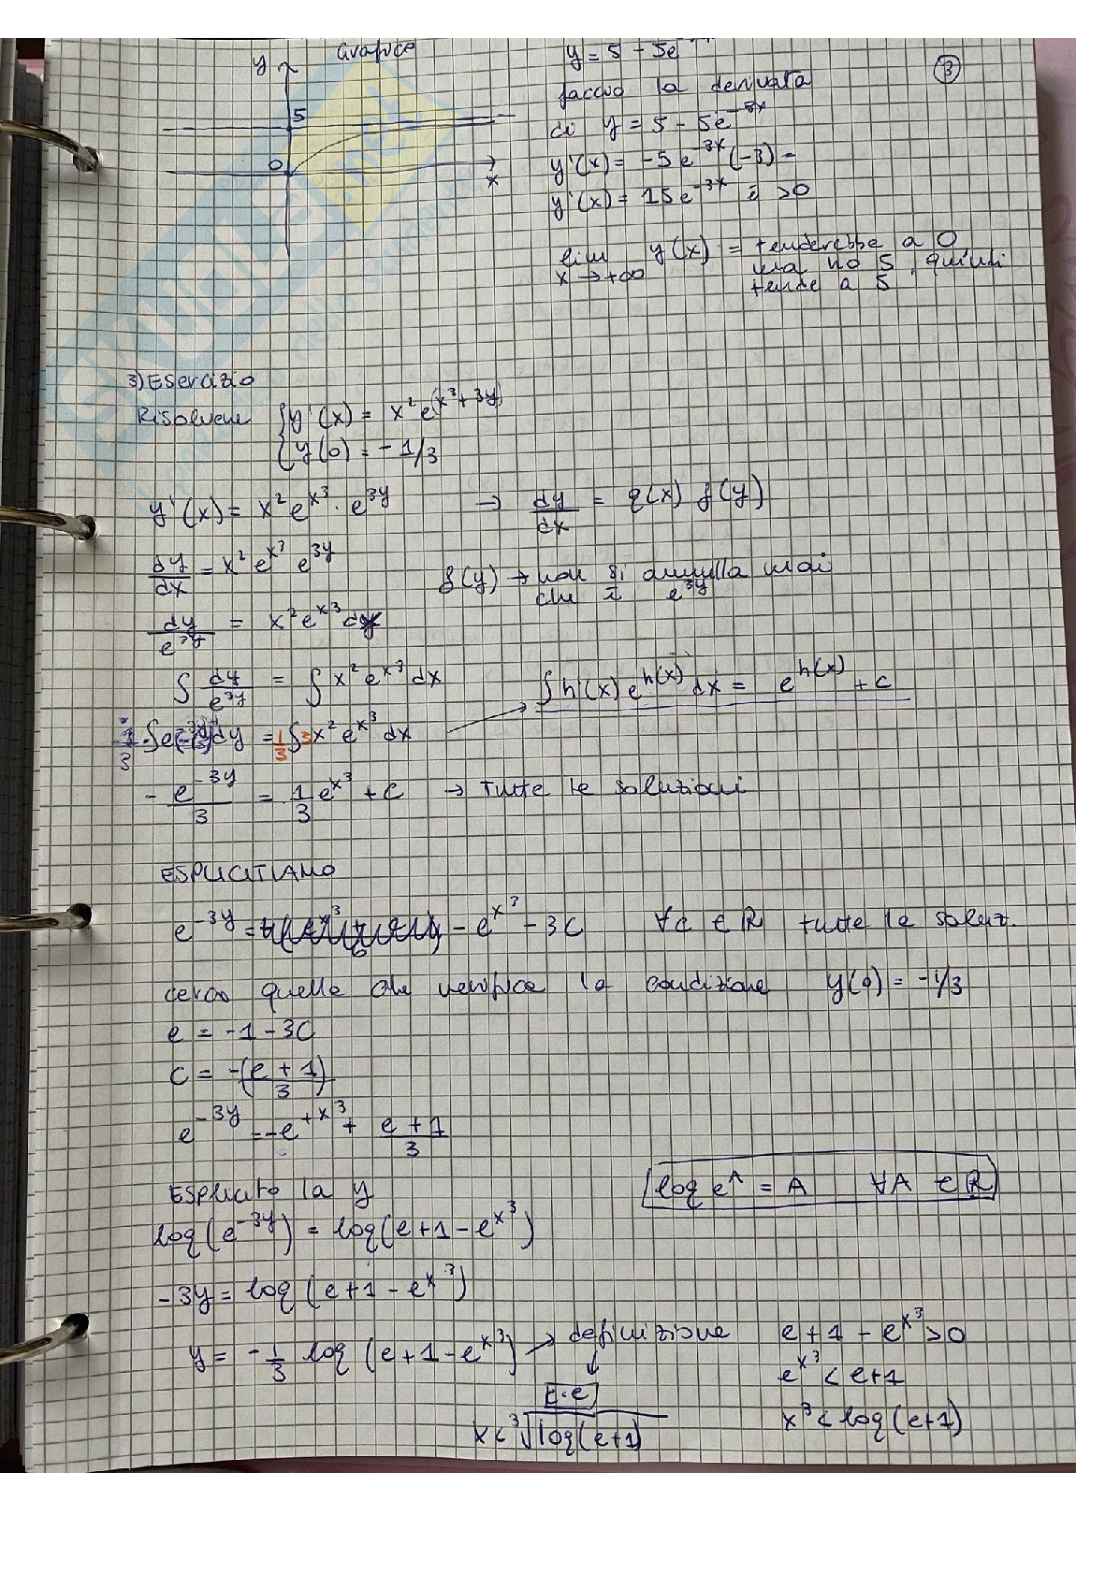 Grafico
y
5
0
x
y = 5 - 5e
③
faccio la derivata
di y = 5 - 5e^-3x
y'(x) = -5e^-3x (-3) =
y'(x) = 15e^-3x è >0
lim x→+∞ y(x) = tenderebbe a 0
ma ho 5, quindi
tende a 5
3) Esercizio
Risolvere { y'(x) = x² e^(x³+3y)
{ y(0) = -1/3
y'(x) = x² e^x³ · e^3y → dy/dx = q(x) f(y)
dy/dx = x² e^x³ e^3y
f(y) → non si annulla mai
che è e^3y
dy/e^3y = x² e^x³ dx
∫ dy/e^3y = ∫ x² e^x³ dx
∫ h'(x) e^h(x) dx = e^h(x) + c
= 1/3 ∫ 3x² e^x³ dx
- e^-3y/3 = 1/3 e^x³ + c → Tutte le soluzioni
ESPLICITIAMO
e^-3y = - e^x³ - 3C ∀c ∈ ℝ tutte le soluz.
cerco quelle che verifica la condizione y(0) = -1/3
e = -1 - 3C
c = -(e + 1)/3
e^-3y = -e^+x³ + e + 1/3
Esplicito la y
log e^A = A ∀A ∈ ℝ
log(e^-3y) = log(e+1-e^x³)
-3y = log (e+1-e^x³)
y = -1/3 log (e+1-e^x³) → definizione
e+1-e^x³ > 0
e^x³ < e+1
C.E
x < ³√log(e+1)
x³ < log(e+1)